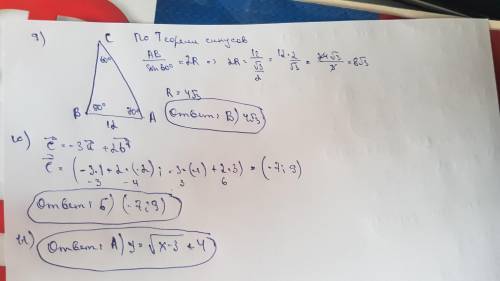 9) По Теореме синусов
C
60°
B 80° 70° A
12
AB/sin60° = 2R => 2R = 12/(√3/2) = 12·2/√3 = 24√3/3 = 8√3
R = 4√3
Ответ: В) 4√3
10) c = -3a + 2b
c = (-3·1 + 2·(-2); -3·(-1) + 2·3) = (-7; 9)
-3 -4 3 6
Ответ: Б) (-7; 9)
11) Ответ: А) y = √x-3 + 4